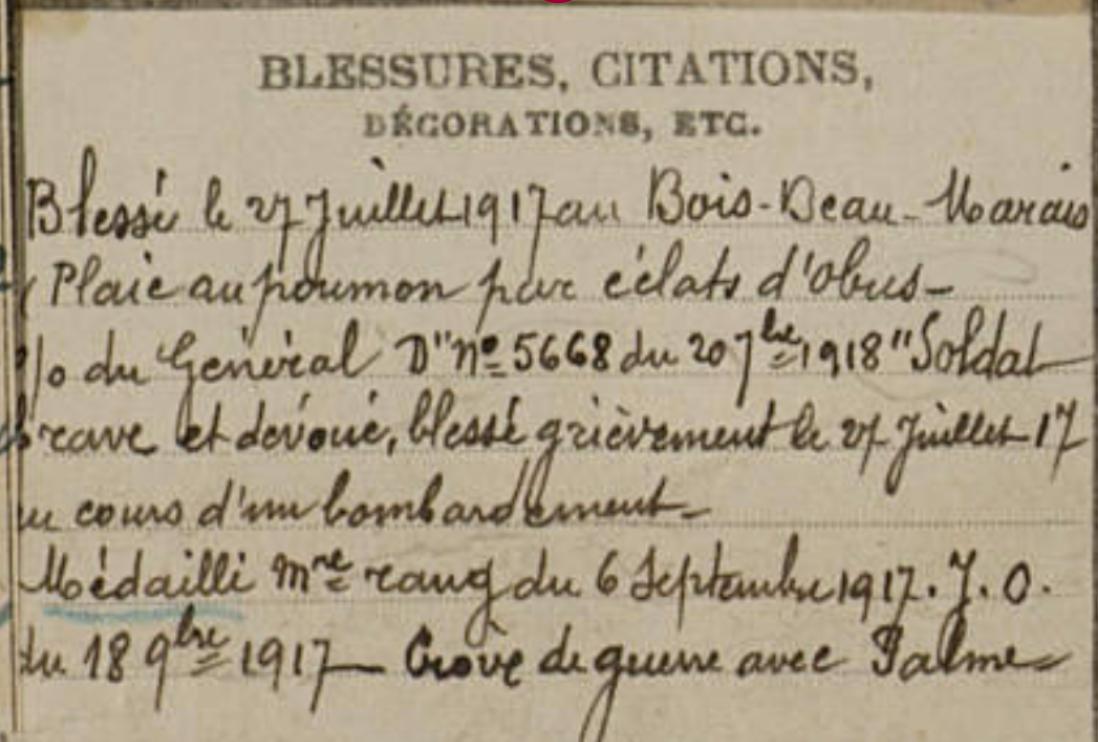 BLESSURES, CITATIONS,
DÉCORATIONS, ETC.
Blessé le 27 Juillet 1917 au Bois-Beau-Marais
Plaie au poumon par éclats d'obus-
/o du Général D" No 5668 du 20 7bre 1918 "Soldat
brave et dévoué, blessé grièvement le 27 Juillet 17
au cours d'un bombardement-
Médaille Mre rang du 6 Septembre 1917. J. O.
du 18 9bre 1917 - Croix de guerre avec Palme-